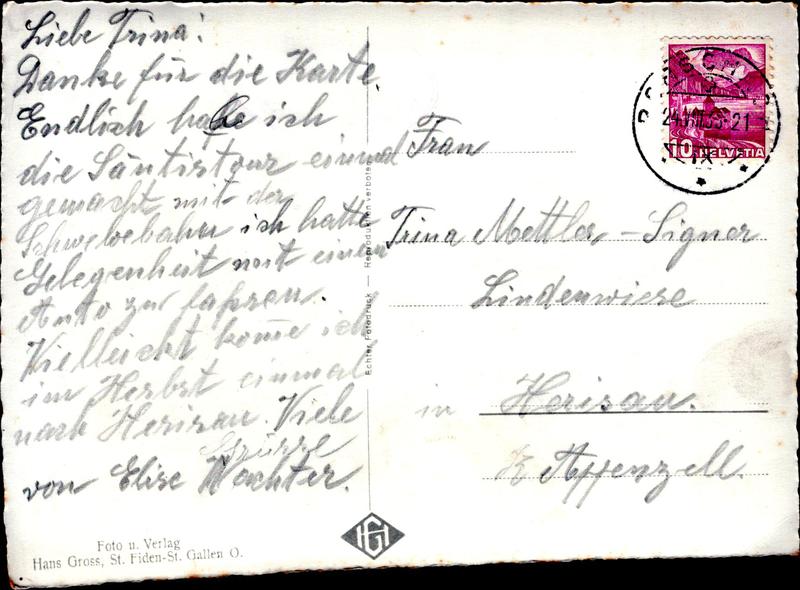 Liebe Trina!
Danke für die Karte.
Endlich habe ich
die Säntistour einmal
gemacht mit der
Schwebebahn ich hatte
Gelegenheit mit einem
Auto zu fahren.
Vielleicht kome ich
im Herbst einmal
nach Herisau. Viele
Grüsse
von Elise Wachter.
Foto u. Verlag
Hans Gross, St. Fiden-St. Gallen O.
Echter Fotodruck — Reproduktion verboten
HG
10 HELVETIA
Frau
Trina Mettler-Signer
Lindenwiese
in Herisau.
K Appenzell.